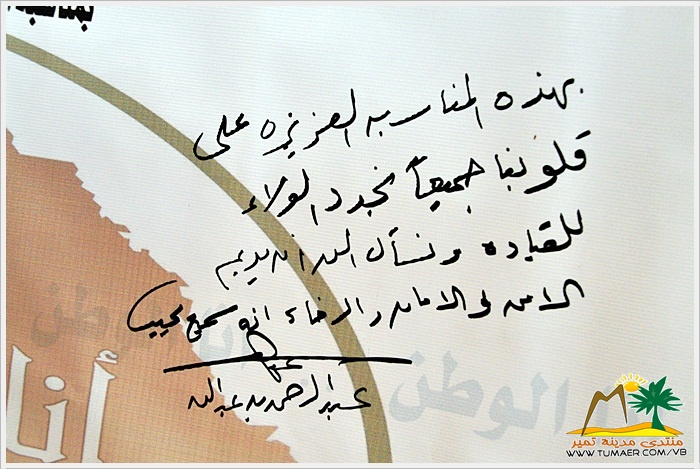 بمناسبة
بهذه المناسبه العزيزه على
قلوبنا جميعاً نجدد الولاء
للقياده ونسأل الله ان يديم
الامن والامان والرخاء انه سميع مجيب
عبدالرحمن بن عبدالله
أنا الوطن
أنا
منتدى مدينة تمير
WWW.TUMAER.COM/VB